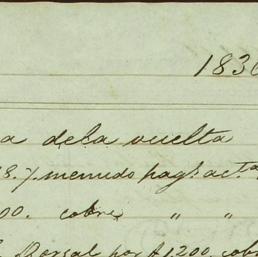 1830
a dela vuelta
8.7. menudo pag.s act.
00. cobre " "
Dorsal por $1200. cobr